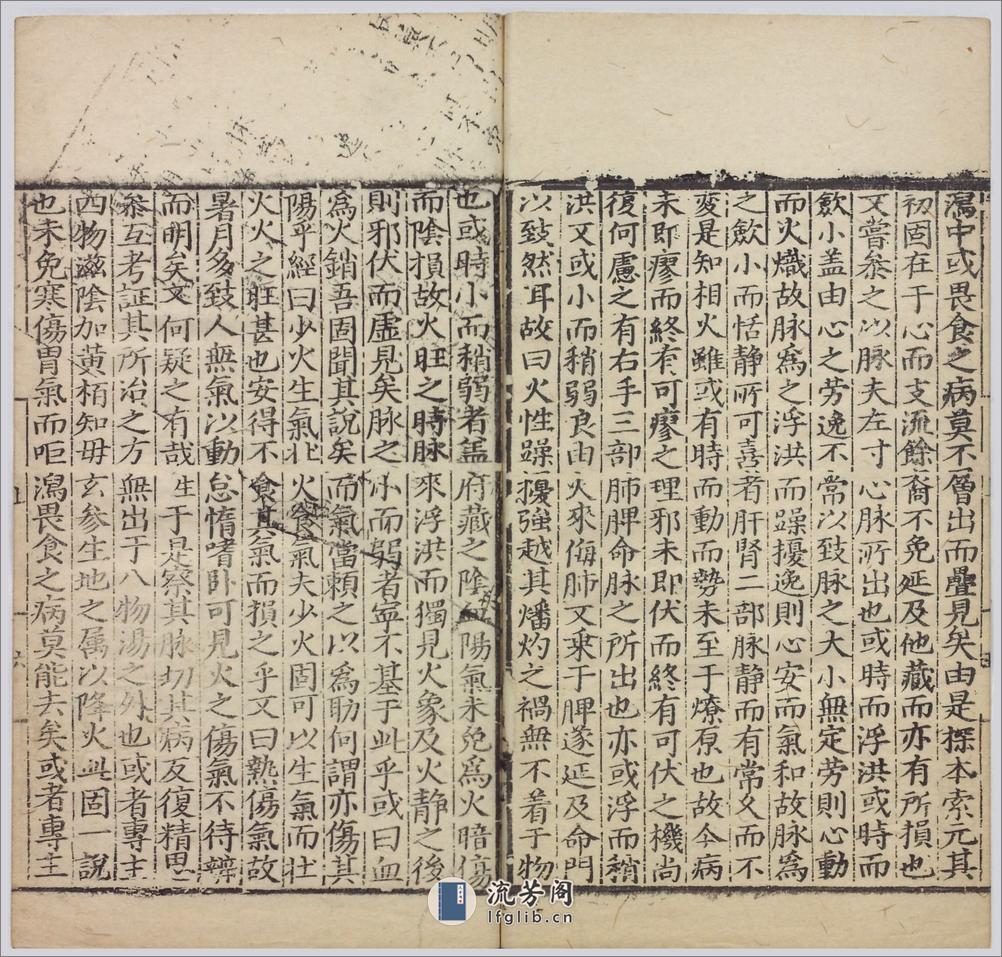 瀉中或畏食之病莫不層出而疊見矣由是探本索元其
初固在于心而支流餘裔不免延及他藏而亦有所損也
又嘗叅之以脉夫左寸心脉所出也或時而浮洪或時而
歛小盖由心之劳逸不常以致脉之大小無定劳則心動
而火熾故脉為之浮洪而躁擾逸則心安而氣和故脉為
之歛小而恬静所可喜者肝腎二部脉静而有常久而不
変是知相火雖或有時而動而勢未至于燎原也故今病
未即瘳而終有可瘳之理邪未即伏而終有可伏之機尚
復何慮之有右手三部肺脾命脉之所出也亦或浮而稍
洪又或小而稍弱良由火來侮肺又乗于脾遂延及命門
以致然耳故曰火性躁擾強越其燔灼之禍無不着于物
也或時小而稍弱者盖府藏之陰血陽氣未免為火暗傷
而陰損故火旺之時脉來浮洪而獨見火象及火静之後
則邪伏而虚見矣脉之小而弱者寔不基于此乎或曰血
為火銷吾固聞其說矣而氣當頼之以為助何謂亦傷其
陽乎經曰少火生氣壮火食氣夫少火固可以生氣而壮
火火之旺甚也安得不食其氣而損之乎又曰熱傷氣故
暑月多致人無氣以動怠惰嗜卧可見火之傷氣不待辨
而明矣又何疑之有哉生于是察其脉切其病反復精思
叅互考証其所治之方無出于八物湯之外也或者專主
四物滋陰加黄栢知毋玄参生地之属以降火此固一說
也未免寒傷胃氣而呕瀉畏食之病莫能去矣或者專主
流芳阁
lfglib.cn